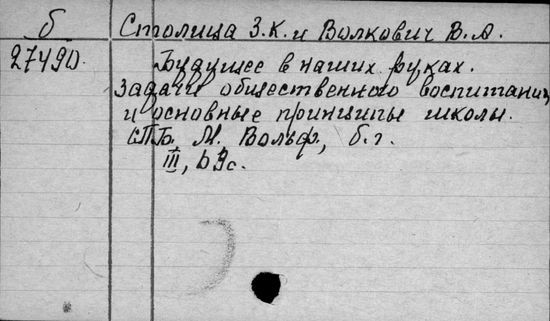 б Столица З.К. и Волкович В.А.
27490. Будущее в наших руках.
Задачи общественного воспитания
и основные принципы школы.
СПБ, М. Вольф, б.г.
III, 69с.